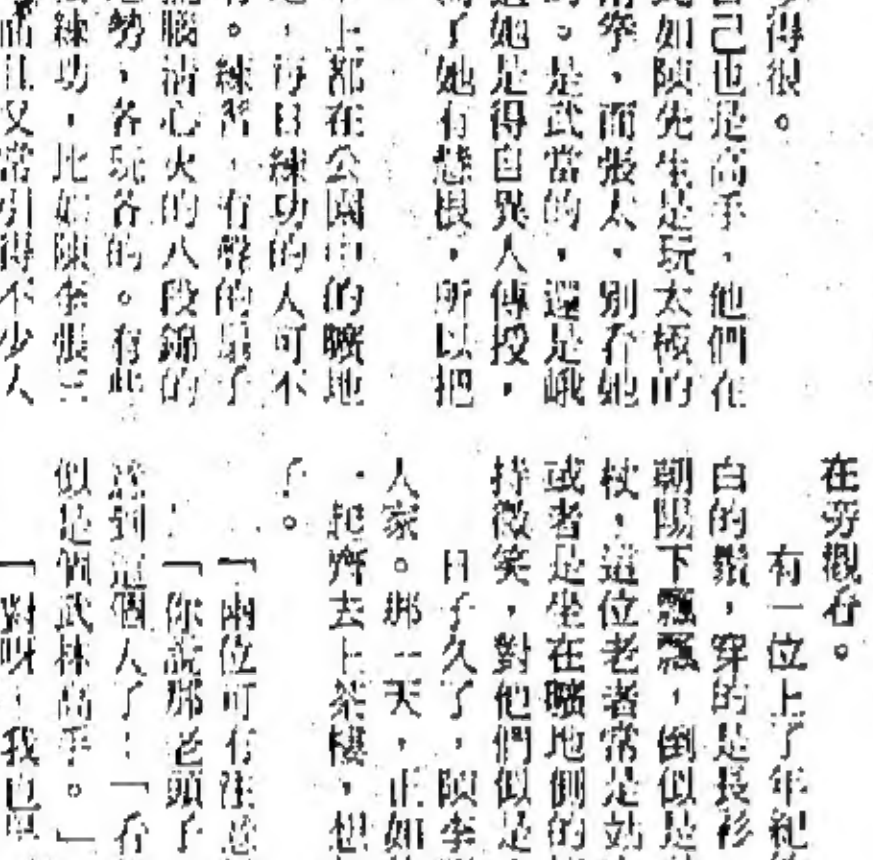 得很。
自己也是高手，他們在
比如陳先生是玩太極的
拳，而張太，別看她
。是武當的，還是峨
她是得自異人傳授，
了她有慧根，所以把
上都在公園中的曠地
，每日練功的人可不
。練習，有聲的
清心火的八段錦的
勢，各玩各的。有些
練功，比如陳李張三
而且又常引得不少人
在旁觀看。
有一位上了年紀
白的鬚，穿的是長衫
朝陽下飄飄，倒似是
杖，這位老者常是站
或者是坐在曠地側的
持微笑，對他們似是
日子久了，陳李
人家。那一天，正如
一起齊去上茶樓，想
了。
「兩位可有注意
「你說那老頭子
到這個人了：「看
似是個武林高手。」
「對呀，我也